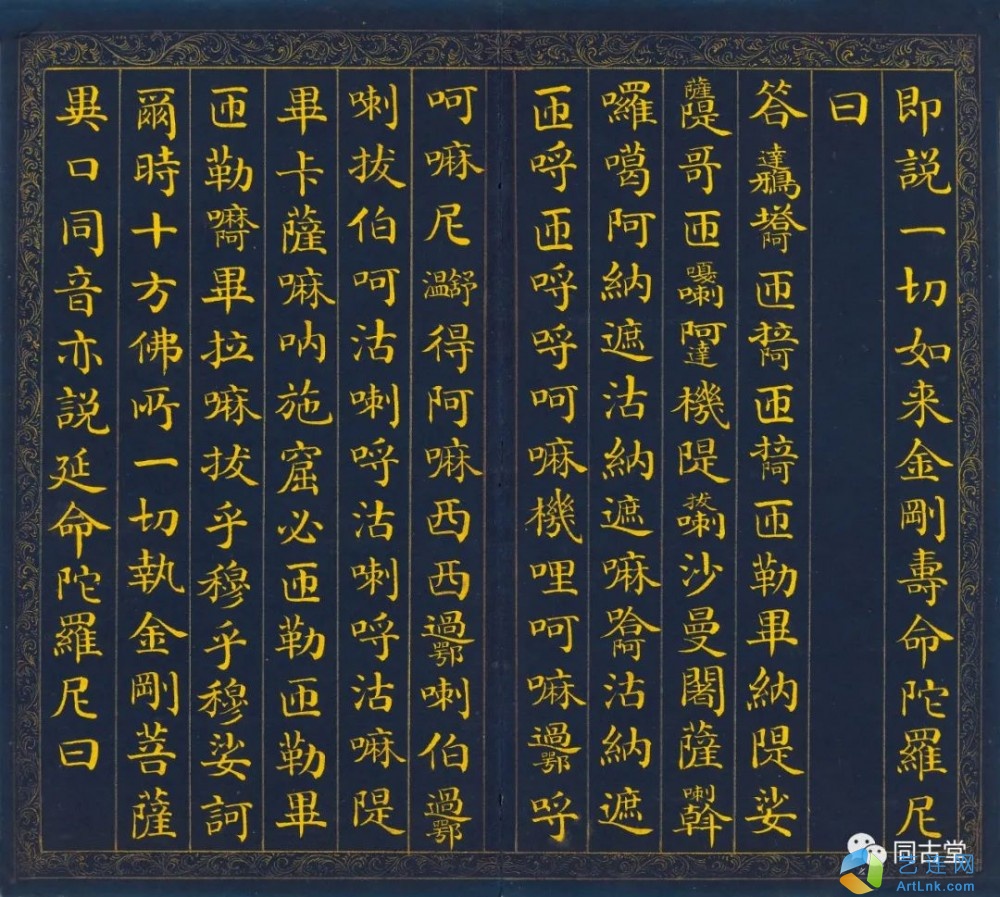 即説一切如来金剛壽命陀羅尼
曰
答達鵶塔阿匝拉阿匝掎阿匝勒畢納隄娑
薩隄哥匝嘎喇阿達機隄拔喇沙曼闍薩喇斡
囉噶阿納遮沽納遮嘛沽納遮
匝呼匝呼呼呵嘛機哩呵嘛過鄂呼
呵嘛尼温舒得阿嘛西西過鄂喇伯過鄂
喇拔伯呵沽喇呼沽喇呼沽嘛隄
畢卡薩嘛吶施窟必匝勒匝勒畢
匝勒畢拉嘛拔乎穆乎穆娑訶
爾時十方佛所一切執金剛菩薩
異口同音亦説延命陀羅尼曰
同古堂
艺连网
ArtLnk.com